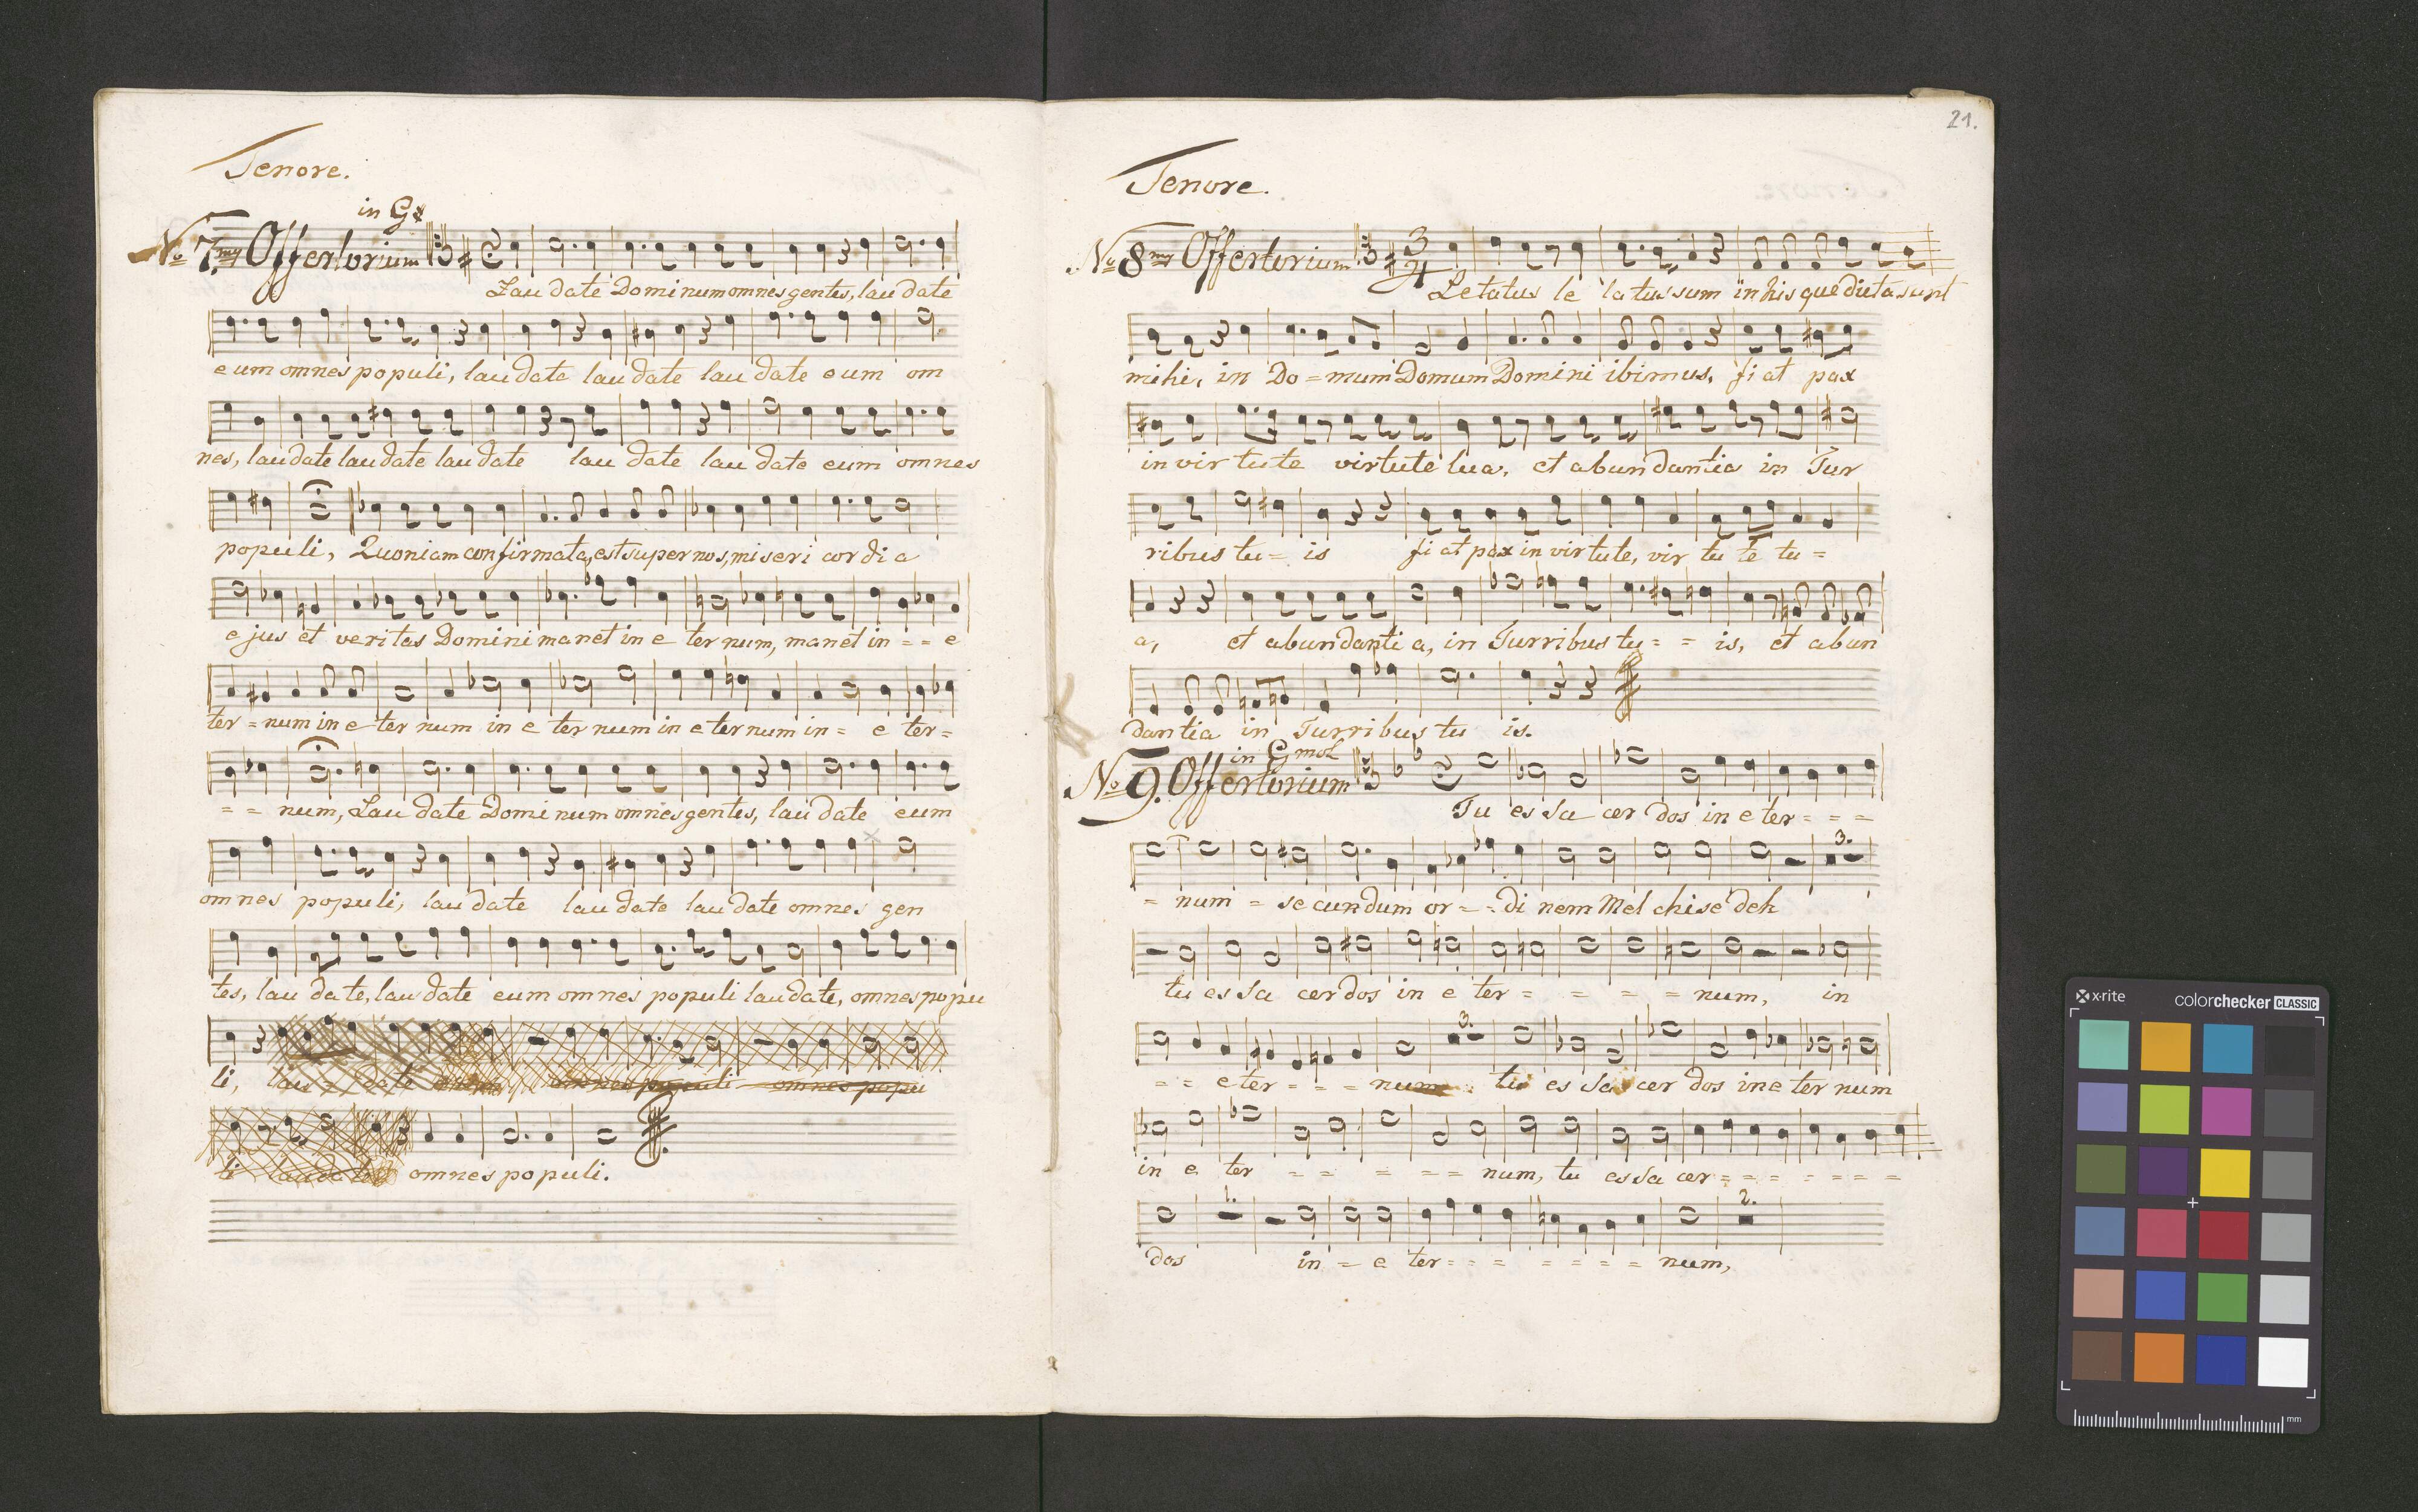 Tenore.
in G♯
No 7my Offertorium
Lau date Domi num omnes gentes, lau date
eum omnes populi, lau date lau date lau date eum om
nes, lau date lau date lau date lau date lau date eum omnes
populi, Quoniam confirmata, est super nos, miseri cordi a
ejus et veritas Domini manet in e ter num, manet in = = e
ter = num in e ter num in e ter num in e ter num in = e ter =
= = num, Lau date Domi num omnes gentes, lau date eum
omnes populi, lau date lau date lau date omnes gen
tes, lau da te, lau date eum omnes populi lau date, omnes popu
li, lau date omnes populi omnes popu
li lau da te omnes populi.
21.
Tenore.
No 8my Offertorium
3/4
Letatus le tatus sum in his que dicta sunt
mihi, in Do = mum Domum Domini ibimus, fi at pax
in vir tute virtute tua, et abun dantia in Tur
ribus tu = is fi at pax in virtute, vir tu te tu =
a, et abundanti a, in Turribus tu = = is, et abun
dantia in Turribus tu is.
in G mol
No 9. Offertorium
Tu es Sa cer dos in e ter = = =
3.
= num = se cundum or = = di nem Mel chise deh
tu es Sa cer dos in e ter = = = = num, in
3.
= = e ter = = = num tu es Sa cer dos in e ter num
in e ter = = = = = num, tu es Sa cer = = = = = = =
1. 2.
dos in = e ter = = = = = = = num,
x-rite colorchecker CLASSIC
mm